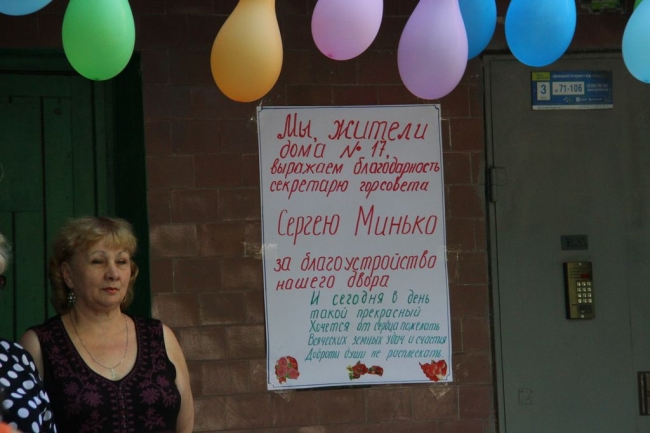 3
71-106
Мы, жители
дома № 17,
выражаем благодарность
секретарю горсовета
Сергею Минько
за благоустройство
нашего двора
И сегодня в день
такой прекрасный
Хочется от сердца пожелать
Всяческих земных удач и счастья
Доброты души не расплескать.